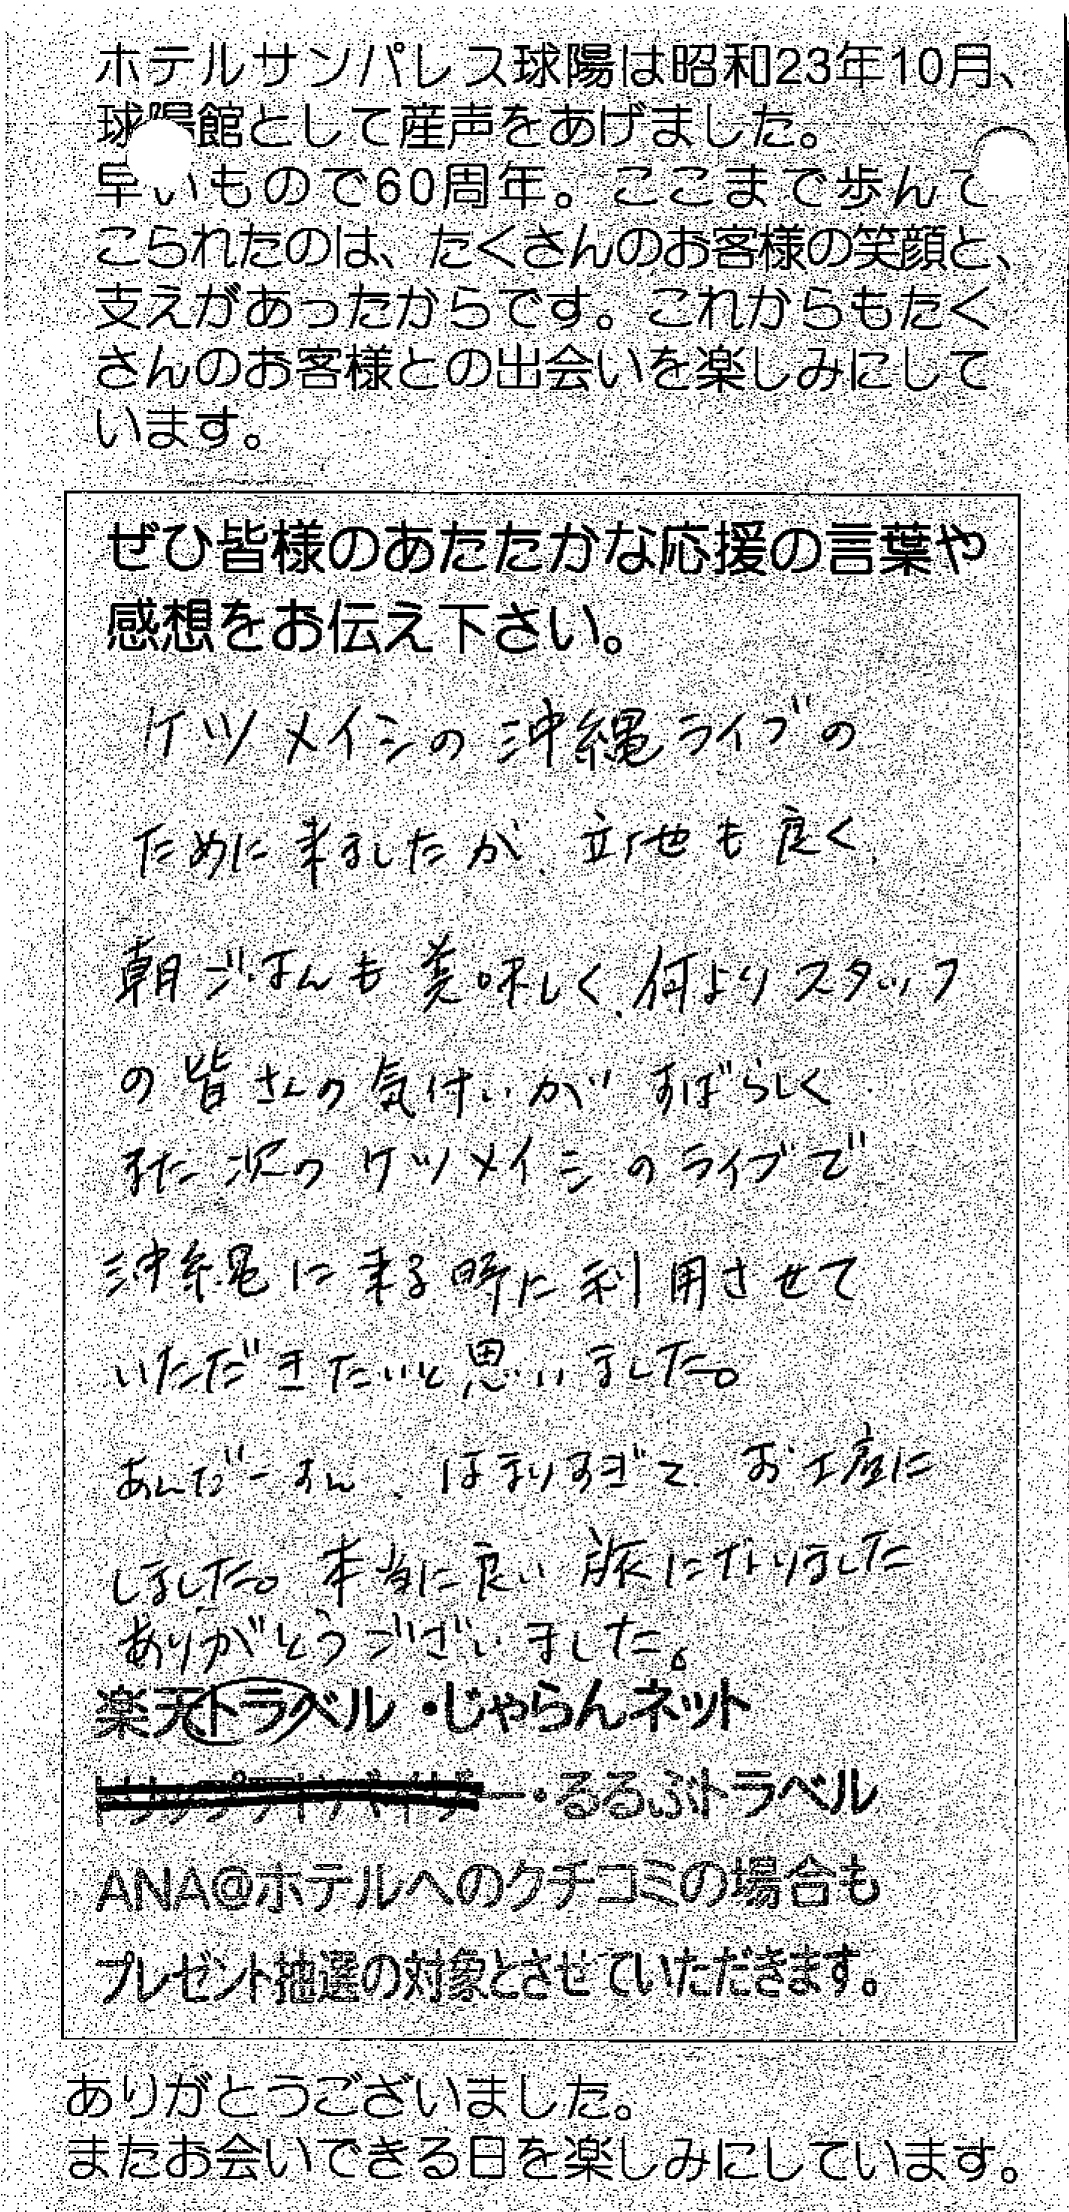 ホテルサンパレス球陽は昭和23年10月、
球陽館として産声をあげました。
早いもので60周年。ここまで歩んで
こられたのは、たくさんのお客様の笑顔と、
支えがあったからです。これからもたく
さんのお客様との出会いを楽しみにして
います。
ぜひ皆様のあたたかな応援の言葉や
感想をお伝え下さい。
ケツメイシの沖縄ライブの
ために来ましたが、立地も良く、
朝ごはんも美味しく、何よりスタッフ
の皆さんの気付いが すばらしく
また次の ケツメイシのライブで
沖縄に来る時に利用させて
いただきたいと思いました。
あんだーすん、はまりすぎて、お土産に
しました。本当に良い旅になりました
ありがとうございました。
楽天トラベル・じゃらんネット
トリップアドバイザー・るるぶトラベル
ANA@ホテルへのクチコミの場合も
プレゼント抽選の対象とさせていただきます。
ありがとうございました。
またお会いできる日を楽しみにしています。